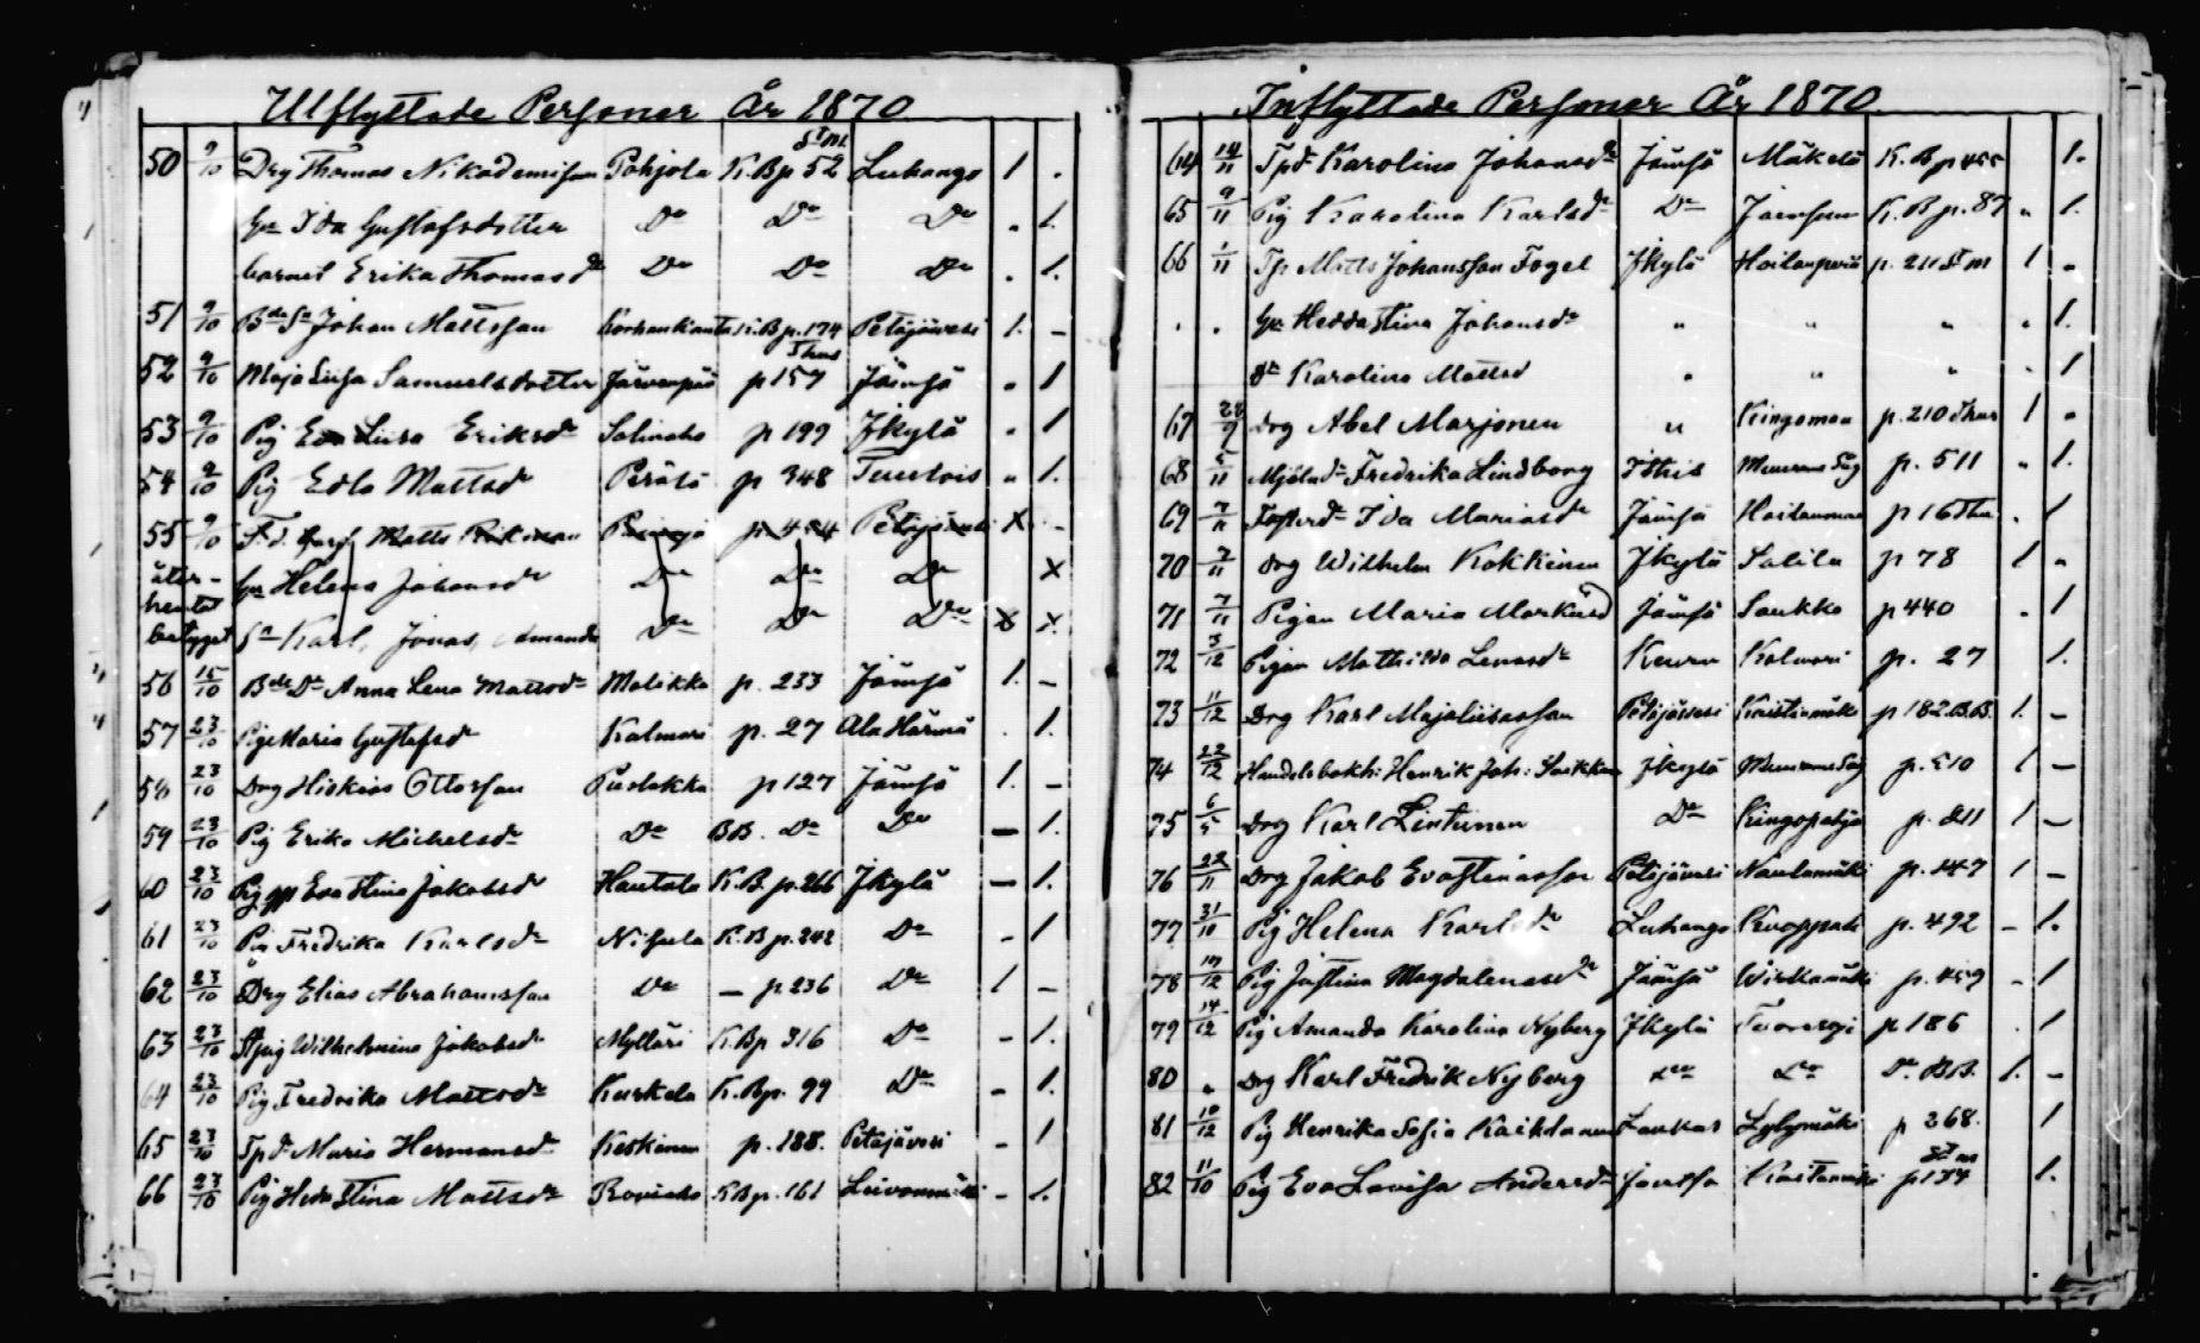 Utflyttade Personer År 1870
50 9/10 Drg Thomas Nikodemisson Pohjola K.Bp 52 St M. Luhango 1 .
Hu Ida Gustafsdotter Do Do Do . 1.
barnet Erika Thomasdr Do Do Do . 1.
51 9/10 Bde Sn Johan Mattsson Korhonkanta K.B p. 174 Petäjävesi 1. –
52 9/10 Maja Liisa Samuelsdotter Järvenpää p 157 Jämsä " 1
53 9/10 Pig Eva Liisa Eriksdr Salinaho p 199 Jkylä " 1
54 9/10 Pig Edla Mattsdr Perälä p 348 " 1.
55 9/10 F.d. Matts p. 454 Petäjävesi X –
åter- Hu Helena Johansdr Do Do Do X
hentat
betyget Sn Karl, Jonas, Amanda Do Do Do X X.
56 15/10 Bde Dr Anna Lena Mattsdr Malikka p. 233 Jämsä 1. –
57 23/10 Pig Maria Gustafsdr Kalmari p. 27 Ala Härmä . 1.
58 23/10 Drg Hiskias Ottosson Puolakka p 127 Jämsä 1. –
59 23/10 Pig Erika Michelsdr Do BB. Do Do – 1.
60 23/10 Pig Eva Stina Jakobsdr Hautala K.B. p. 266 Jkylä – 1.
61 23/10 Pig Fredrika Karlsdr Nisula K.B p. 242 Do – 1
62 23/10 Drg Elias Abrahamsson Do – p 236 Do 1 –
63 23/10 Wilhelmina Jakobsdr Mylläri K.Bp 316 Do – 1.
64 23/10 Pig Fredrika Mattsdr Kurkela K.Bp. 99 Do – 1.
65 23/10 Tpdr Maria Hermansdr Keskinen p. 188. Petäjävesi – 1
66 23/10 Pig Heda Stina Mattsdr K Bp. 161 Leivonmäki – 1.
Inflyttade Personer År 1870
64 14/11 Tpdr Karolina Johansdr Jämsä Mäkelä K.B p 455 1.
65 9/11 Pig Karolina Karlsdr Do K.B p. 87 " 1.
66 1/11 Tp Matts Johansson Fogel Jkylä p. 211 St M 1 "
. . Hu Hedda Stina Johansdr " " " " 1.
Dr Karolina Mattsd " " " " 1
67 28/9 Drg Abel Marjonen " Kingoman p. 210 1 "
68 5/11 Fredrika Lindborg p. 511 " 1.
69 7/11 Fosterdr Ida Mariasdr Jämsä p 16 . 1
70 7/11 Drg Wilhelm Kokkinen Jkylä Salila p 78 1 "
71 7/11 Pigan Maria Markusd Jämsä Saukko p 440 . 1
72 3/12 Pigan Mathilda Lenasdr Keuru Kalmari p. 27 1.
73 11/12 Drg Karl Majaliisasson Petäjävesi p 182.B.B. 1. –
74 22/12 Handelsbokh: Henrik Joh: Jkylä p. 510 1 –
75 6/5 Drg Karl Lintunen Do Kingopohja p. 211 1 –
76 22/11 Drg Jakob Evastinasson Petäjävesi p. 147 1 –
77 31/10 Pig Helena Karlsdr Luhango p. 492 – 1.
78 10/12 Pig Justina Magdalenasdr Jämsä p. 459 – 1
79 14/12 Pig Amanda Karolina Nyberg Jkylä p 186 . 1
80 " Drg Karl Fredrik Nyberg Do Do Do. BB. 1. –
81 10/12 Pig Henrika Sofia Laukas Lylymäki p 268. 1
82 11/10 Pig Eva Lovisa Andersdr St M p 134 1.